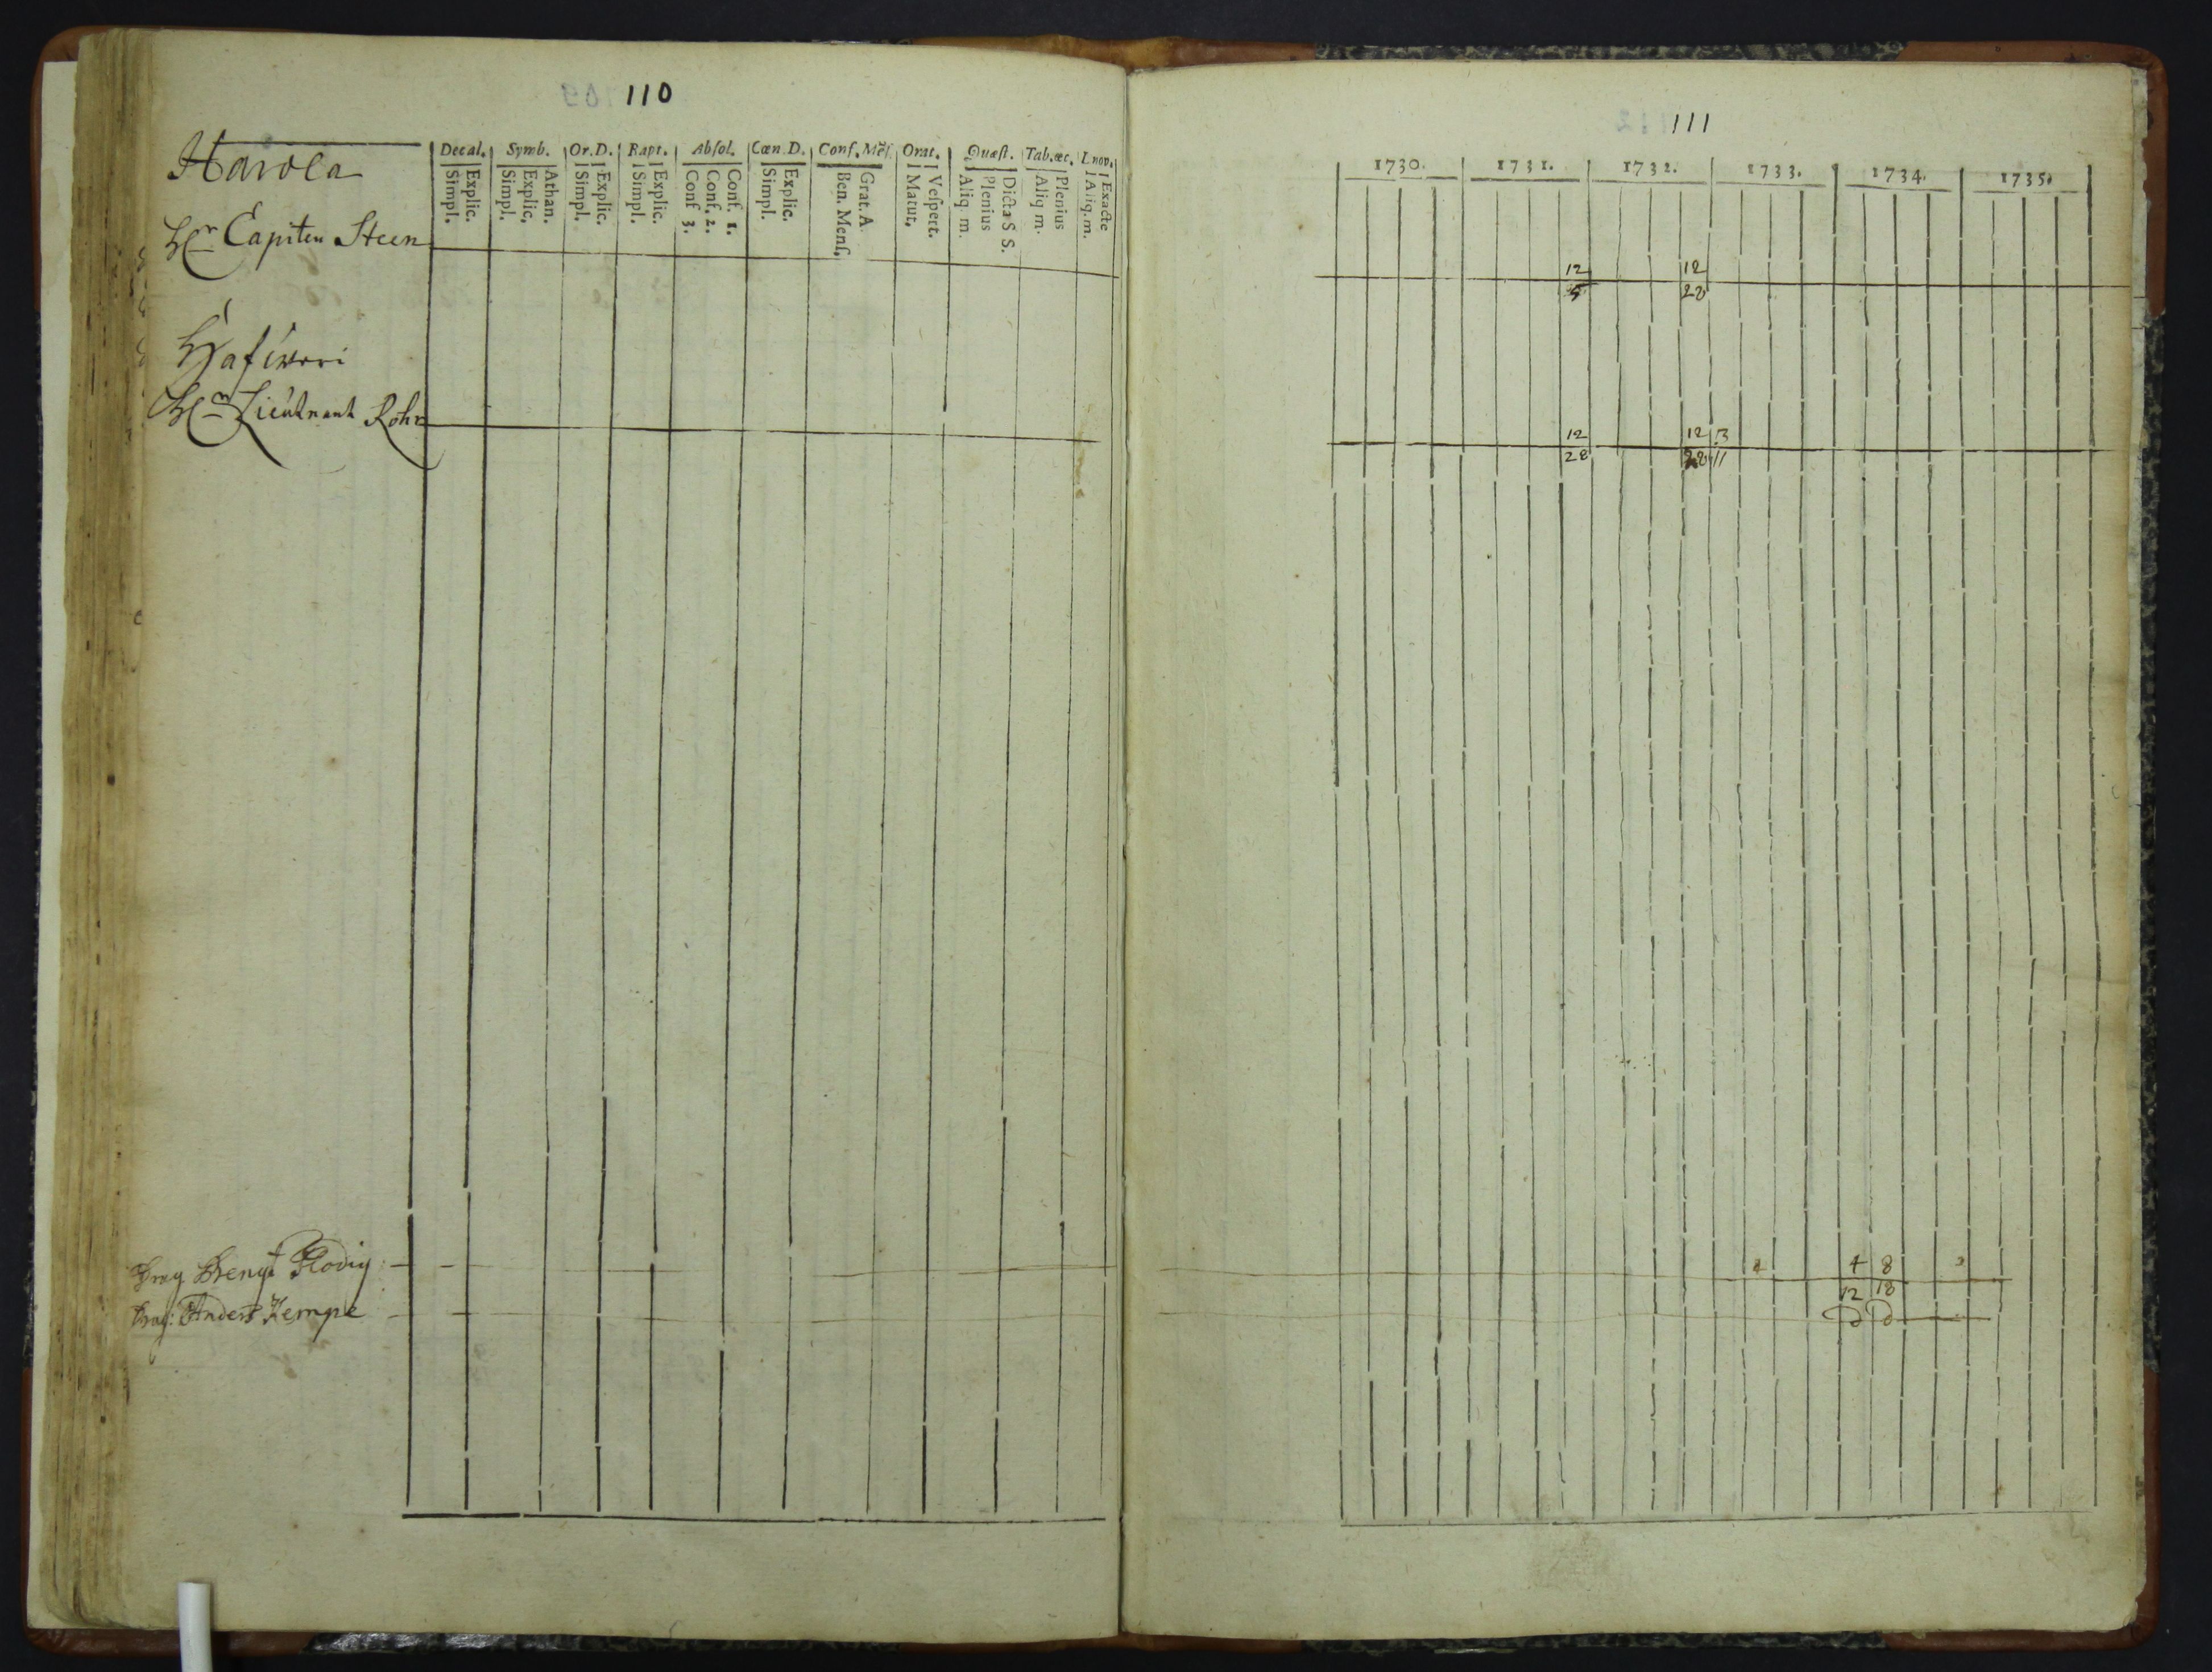 110
Harola
Decal. Symb. Or.D. Bapt. Absol. Cœn.D. Conf. Mēs. Orat. Quæst. Tab.œc. L nov.
Simpl. Explic. Simpl. Explic. Athan. Simpl. Explic. Simpl. Explic. Conf 3. Conf. 2. Conf. 1. Simpl. Explic. Ben. Mens. Grat. A. Matut. Vespert. Aliq. m. Plenius Dicta S S. Aliq m. Plenius Aliq. m. Exacte
Hr Capiten Steen
Hr Lieutnant Rohr
Drag Bengt Flodig
Drag: Anders Kempe
111
1730. 1731. 1732. 1733. 1734. 1735.
12 12
5 28
12 12 3
28 28 11
4 8
12 18